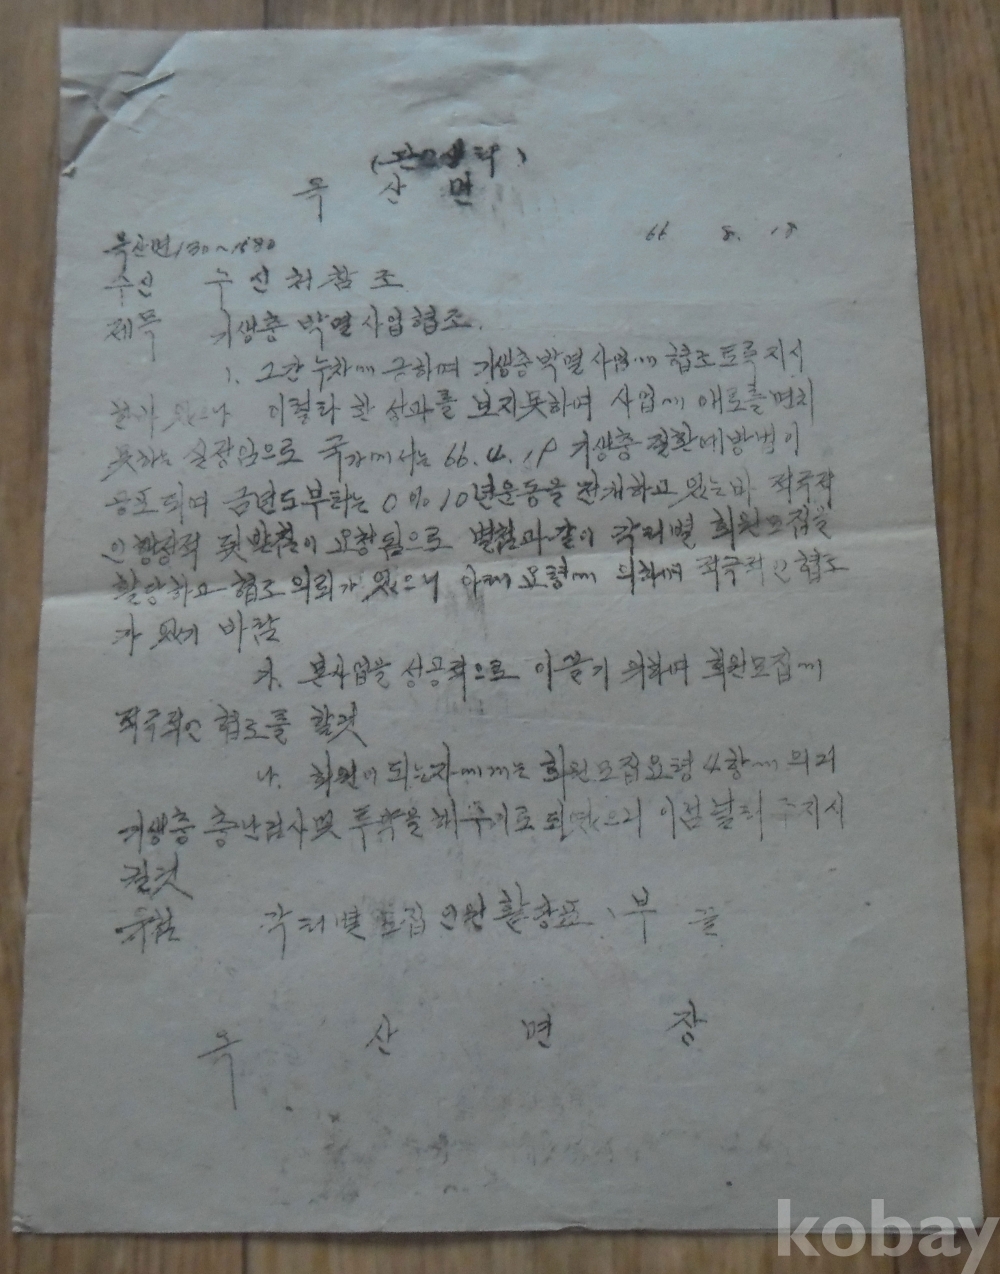 옥 산 면
옥산면130~1680 66 8. 18
수신 수신처참조
제목 기생충 박멸사업협조.
1. 그간 누차에 긍하여 기생충박멸사업에 협조토록 지시
한바 있으나 이렇다 한 성과를 보지못하며 사업에 애로를 면치
못하는 실정임으로 국가에서는 66.4.19 기생충질환예방법이
공포되며 금년도부터는 0%10년운동을 전개하고 있는바 적극적
인 행정적 뒷받침이 요청됨으로 별첨과같이 각 회원모집을
할당하고 협조의뢰가 있으니 아래 요령에 의하여 적극적인 협조
가 있기 바람
가. 본사업을 성공적으로 이끌기 위하여 회원모집에
적극적인 협조를 할것
나. 회원이 되는자에게는 회원모집요령 4항에 의거
기생충 충난검사및 투약을 해주기로 되었으니 이점 널리 주지시
킬것
유첨 각 모집인원할당표 1부 끝
옥 산 면 장
kobay